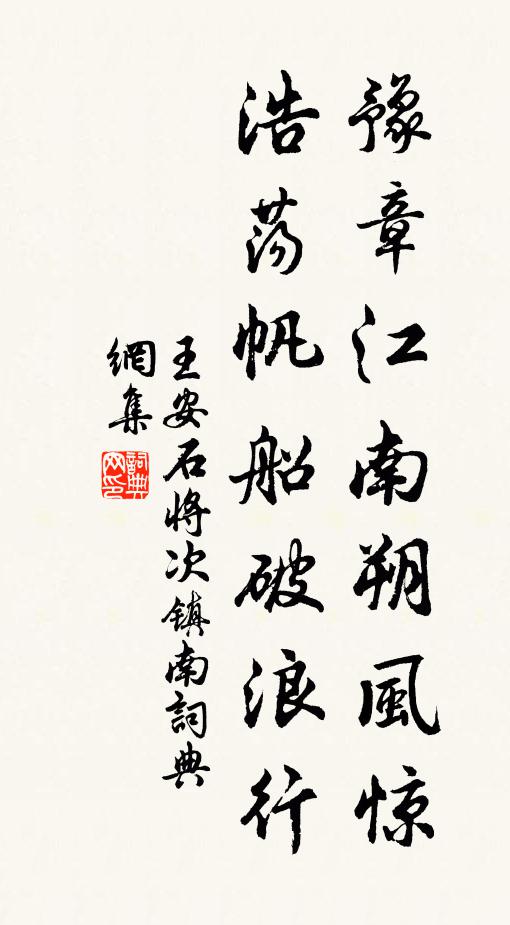 豫章江南朔風惊
浩荡帆船破浪行
王安石將次鎮南詞典
網集
詞典
网印